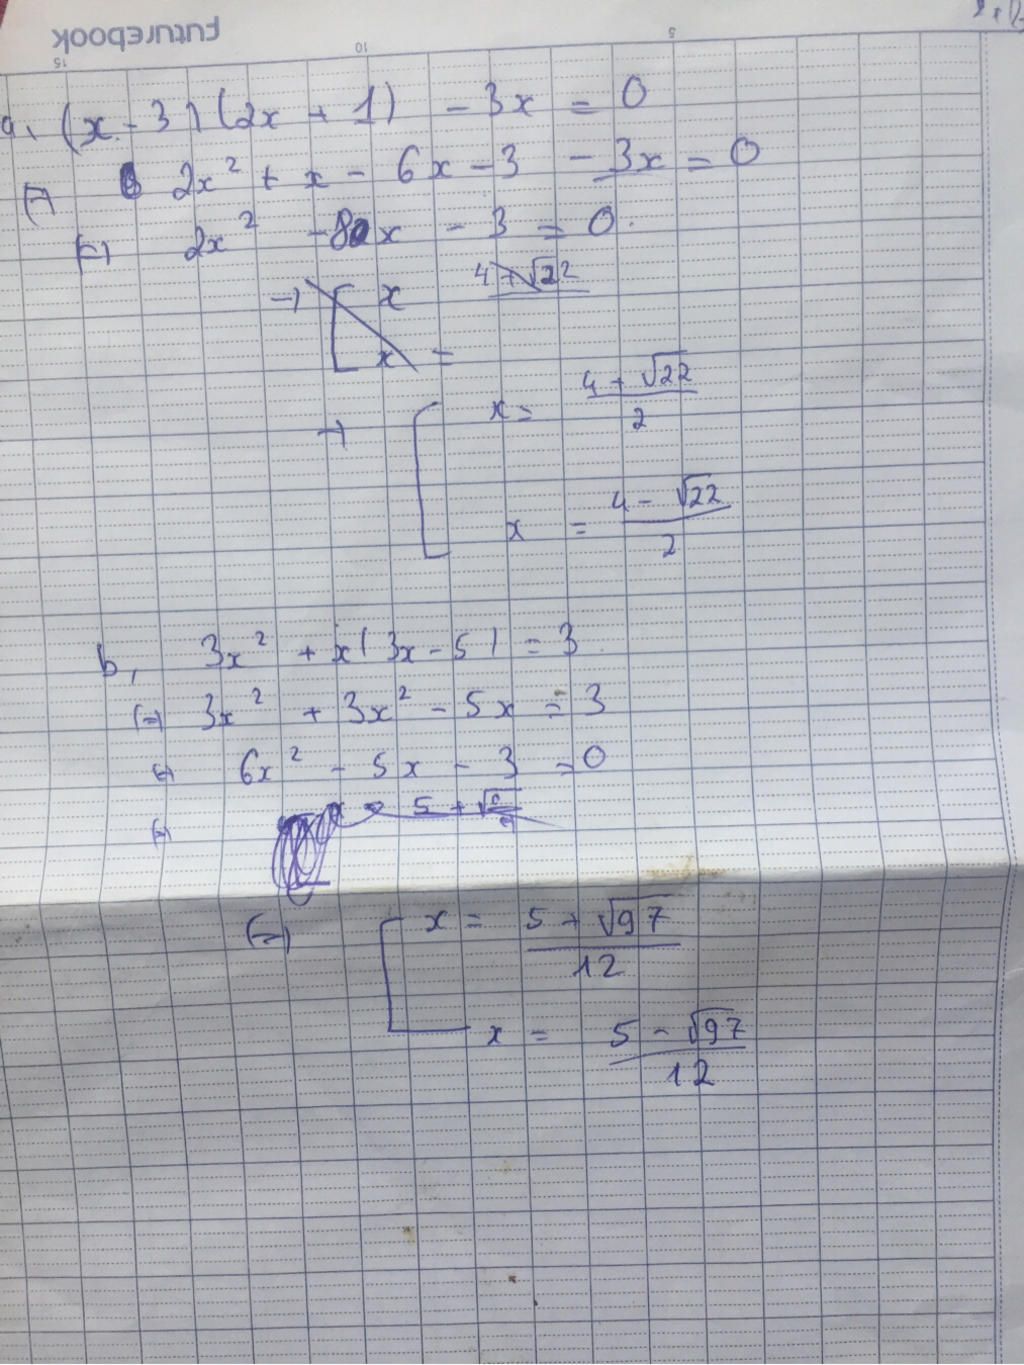 Futurebook
15 10 5
a, (x - 3)(2x + 1) - 3x = 0
(=) 2x² + x - 6x - 3 - 3x = 0
(=) 2x² - 8x - 3 = 0.
4 + √22
→ [ x
x =
→ [ x = (4 + √22)/2
x = (4 - √22)/2
b, 3x² + x(3x - 5) = 3
(=) 3x² + 3x² - 5x = 3
(=) 6x² - 5x - 3 = 0
(=) 5 + √
(=) [ x = (5 + √97)/12
x = (5 - √97)/12